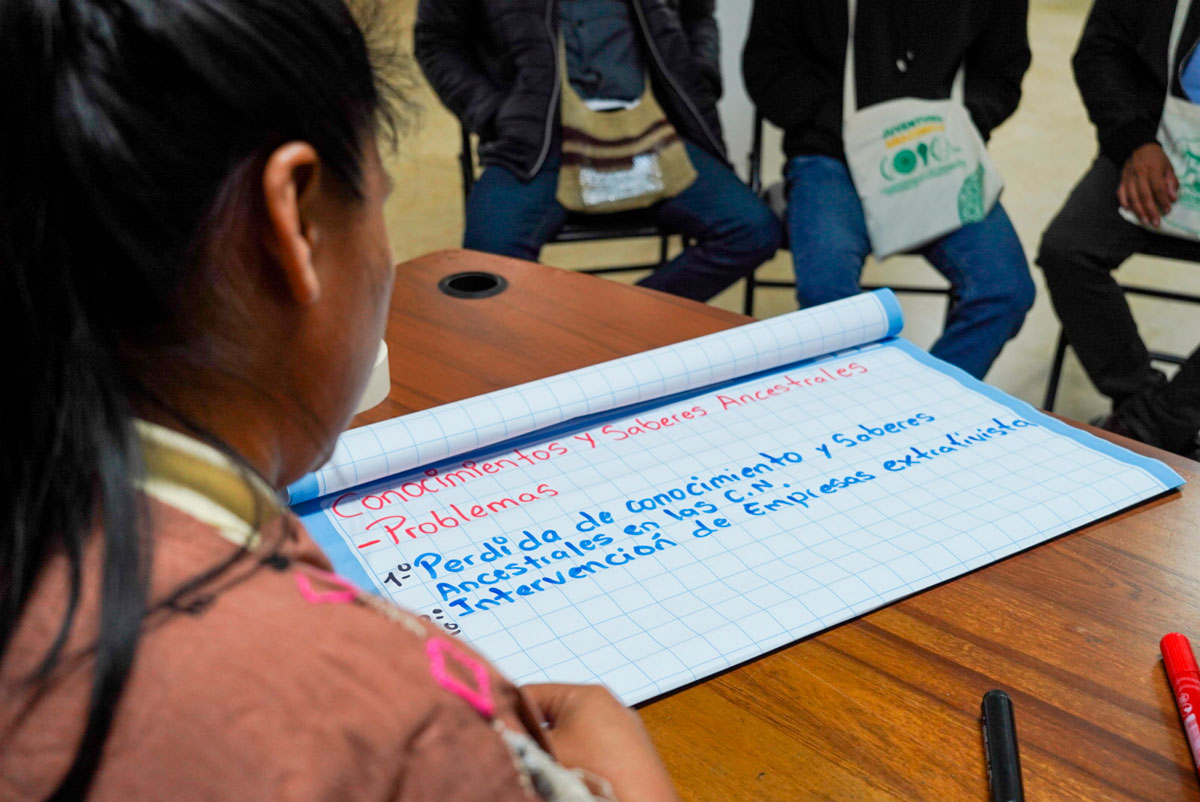 Conocimientos y Saberes Ancestrales
-Problemas
1º Perdida de conocimiento y saberes
Ancestrales en las C.N.
Intervención de Empresas extradivista
JUVENTUDES
COICA